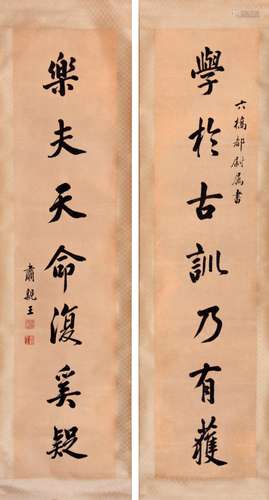 學於古訓乃有獲
六橋都尉屬書
樂夫天命復奚疑
肅親王